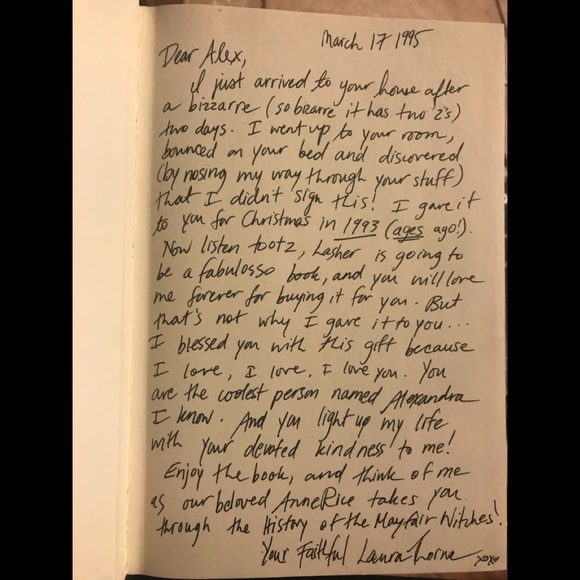 March 17 1995
Dear Alex,
I just arrived to your house after
a bizzarre (so bizarre it has two 'z's)
two days. I went up to your room,
bounced on your bed and discovered
(by nosing my way through your stuff)
that I didn't sign this! I gave it
to you for Christmas in 1993 (ages ago!).
Now listen tootz, Lasher is going to
be a fabulosso book, and you will love
me forever for buying it for you. But
that's not why I gave it to you...
I blessed you with this gift because
I love, I love, I love you. You
are the coolest person named Alexandra
I know. And you light up my life
with your devoted kindness to me!
Enjoy the book, and think of me
as our beloved Anne Rice takes you
through the History of the Mayfair Witches!
Your Faithful Laura Lorna
xoxo